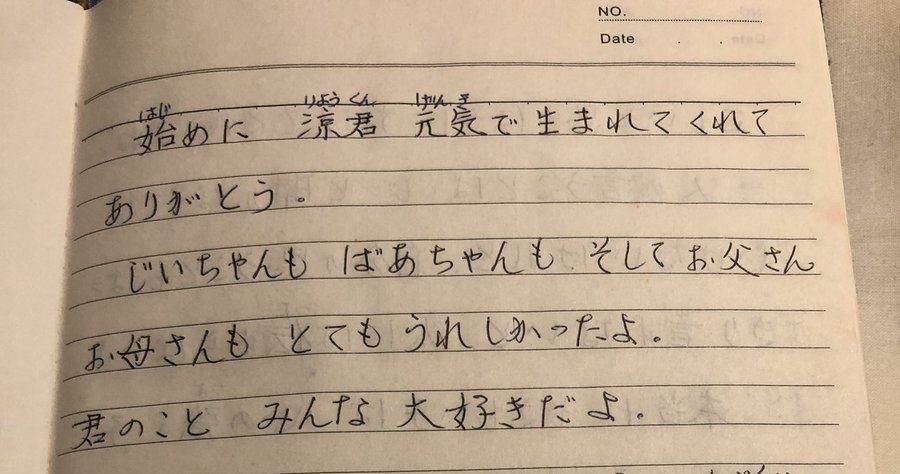 NO.
Date . .
はじ りょう くん げん き
始めに 涼君 元気で生まれてくれて
ありがとう。
じいちゃんも ばあちゃんも そして お父さん
お母さんも とても うれしかったよ。
君のこと みんな 大好きだよ。